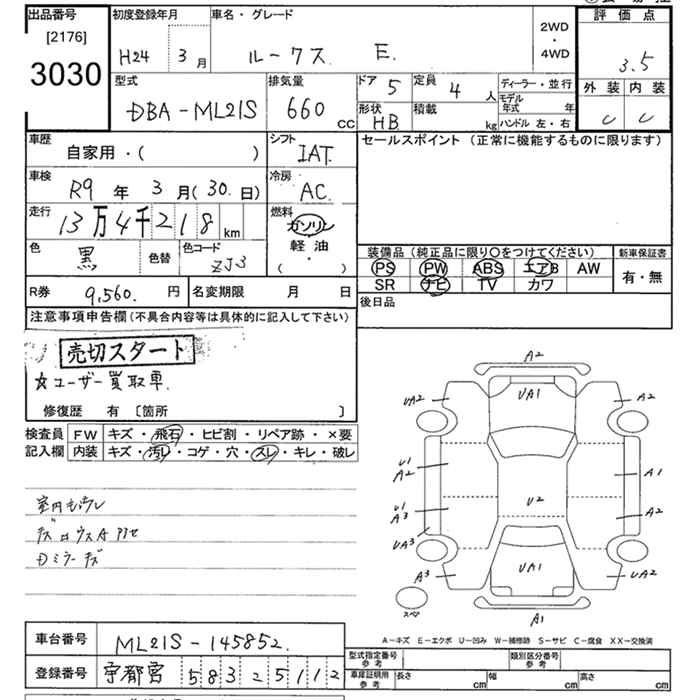 出品番号 初度登録年月 車名・グレード 2WD・4WD 評価点
[2176]
3030 H24 3月 ルークス E. 3.5
型式 排気量 ドア 5 定員 4人 ディーラー・並行 外装 内装
DBA-ML21S 660 cc 形状 HB 積載 kg モデル年式 年 C C
ハンドル 左・右
車歴 シフト セールスポイント (正常に機能するものに限ります)
自家用・( ) IAT
車検 R9年 3月(30.日) 冷房 AC.
走行 13万4千218km 燃料 ガソリン
軽油
( ・ )
色 黒 色替 色コード ZJ3
装備品(純正品に限り○をつけてください) 新車保証書
PS PW ABS エアB AW 有・無
SR ナビ TV カワ
R券 9,560.円 名変期限 月 日 後日品
注意事項申告欄(不具合内容等は具体的に記入して下さい)
売切スタート
☆ユーザー買取車.
修復歴 有 [箇所 ]
検査員 FW キズ・飛石・ヒビ割・リペア跡・×要
記入欄 内装 キズ・汚レ・コゲ・穴・スレ・キレ・破レ
A2
UA2 UA1 A2
U1 A2 A1
U1 A3 U2 A2
UA3
A3 UA1 UA2
スペ A1
室内モヨウレ
Dミラーキズ
A-キズ E-エクボ U-凹み W-補修跡 S-サビ C-腐食 XX-交換済
車台番号 ML21S-145852.
登録番号 宇都宮 583 2 5112
型式指定番号 参考 類別区分番号 参考
車庫証明用 参考 長さ cm 幅 cm 高さ cm